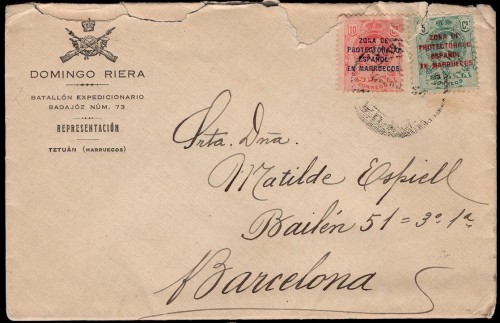 DOMINGO RIERA
BATALLÓN EXPEDICIONARIO
BADAJÓZ NÚM. 73
REPRESENTACIÓN
TZTUÁN (MARRUECOS)
10
ZONA DE
PROTECTORADO
ESPAÑOL
EN MARRUECOS
CORREOS
5 Cs
ZONA DE
PROTECTORADO
ESPAÑOL
EN MARRUECOS
CORREOS
Srta. Dña.
Matilde Espiell
Bailén 51=3º.1ª
Barcelona